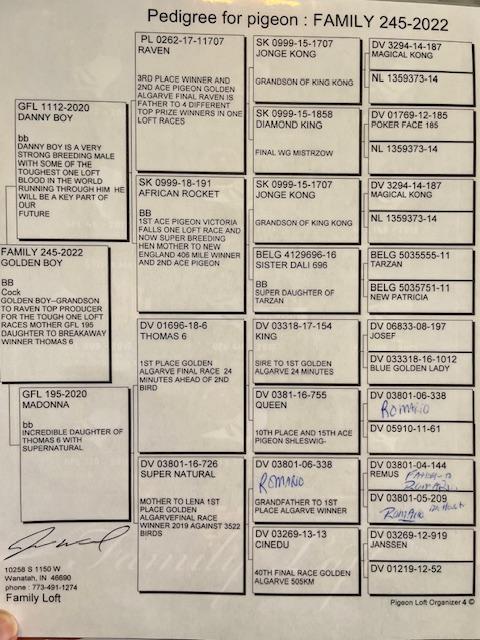 Pedigree for pigeon : FAMILY 245-2022
FAMILY 245-2022
GOLDEN BOY
BB
Cock
GOLDEN BOY--GRANDSON
TO RAVEN TOP PRODUCER
FOR THE TOUGH ONE LOFT
RACES MOTHER GFL 195
DAUGHTER TO BREAKAWAY
WINNER THOMAS 6
GFL 1112-2020
DANNY BOY
bb
DANNY BOY IS A VERY
STRONG BREEDING MALE
WITH SOME OF THE
TOUGHEST ONE LOFT
BLOOD IN THE WORLD
RUNNING THROUGH HIM HE
WILL BE A KEY PART OF
OUR
FUTURE
GFL 195-2020
MADONNA
bb
INCREDIBLE DAUGHTER OF
THOMAS 6 WITH
SUPERNATURAL
PL 0262-17-11707
RAVEN
3RD PLACE WINNER AND
2ND ACE PIGEON GOLDEN
ALGARVE FINAL RAVEN IS
FATHER TO 4 DIFFERENT
TOP PRIZE WINNERS IN ONE
LOFT RACES
SK 0999-18-191
AFRICAN ROCKET
BB
1ST ACE PIGEON VICTORIA
FALLS ONE LOFT RACE AND
NOW SUPER BREEDING
HEN MOTHER TO NEW
ENGLAND 406 MILE WINNER
AND 2ND ACE PIGEON
DV 01696-18-6
THOMAS 6
1ST PLACE GOLDEN
ALGARVE FINAL RACE 24
MINUTES AHEAD OF 2ND
BIRD
DV 03801-16-726
SUPER NATURAL
MOTHER TO LENA 1ST
PLACE GOLDEN
ALGARVEFINAL RACE
WINNER 2019 AGAINST 3522
BIRDS
SK 0999-15-1707
JONGE KONG
GRANDSON OF KING KONG
SK 0999-15-1858
DIAMOND KING
FINAL WG MISTRZOW
SK 0999-15-1707
JONGE KONG
GRANDSON OF KING KONG
BELG 4129696-16
SISTER DALI 696
BB
SUPER DAUGHTER OF
TARZAN
DV 03318-17-154
KING
SIRE TO 1ST GOLDEN
ALGARVE 24 MINUTES
DV 0381-16-755
QUEEN
10TH PLACE AND 15TH ACE
PIGEON SHLESWIG-
DV 03801-06-338
ROMARIO
GRANDFATHER TO 1ST
PLACE ALGARVE WINNER
DV 03269-13-13
CINEDU
40TH FINAL RACE GOLDEN
ALGARVE 505KM
DV 3294-14-187
MAGICAL KONG
NL 1359373-14
DV 01769-12-185
POKER FACE 185
NL 1359373-14
DV 3294-14-187
MAGICAL KONG
NL 1359373-14
BELG 5035555-11
TARZAN
BELG 5035751-11
NEW PATRICIA
DV 06833-08-197
JOSEF
DV 033318-16-1012
BLUE GOLDEN LADY
DV 03801-06-338
ROMARIO
DV 05910-11-61
DV 03801-04-144
REMUS
DV 03801-05-209
ROMARIO
DV 03269-12-919
JANSSEN
DV 01219-12-52
10258 S 1150 W
Wanatah, IN 46690
phone : 773-491-1274
Family Loft
Pigeon Loft Organizer 4 ©